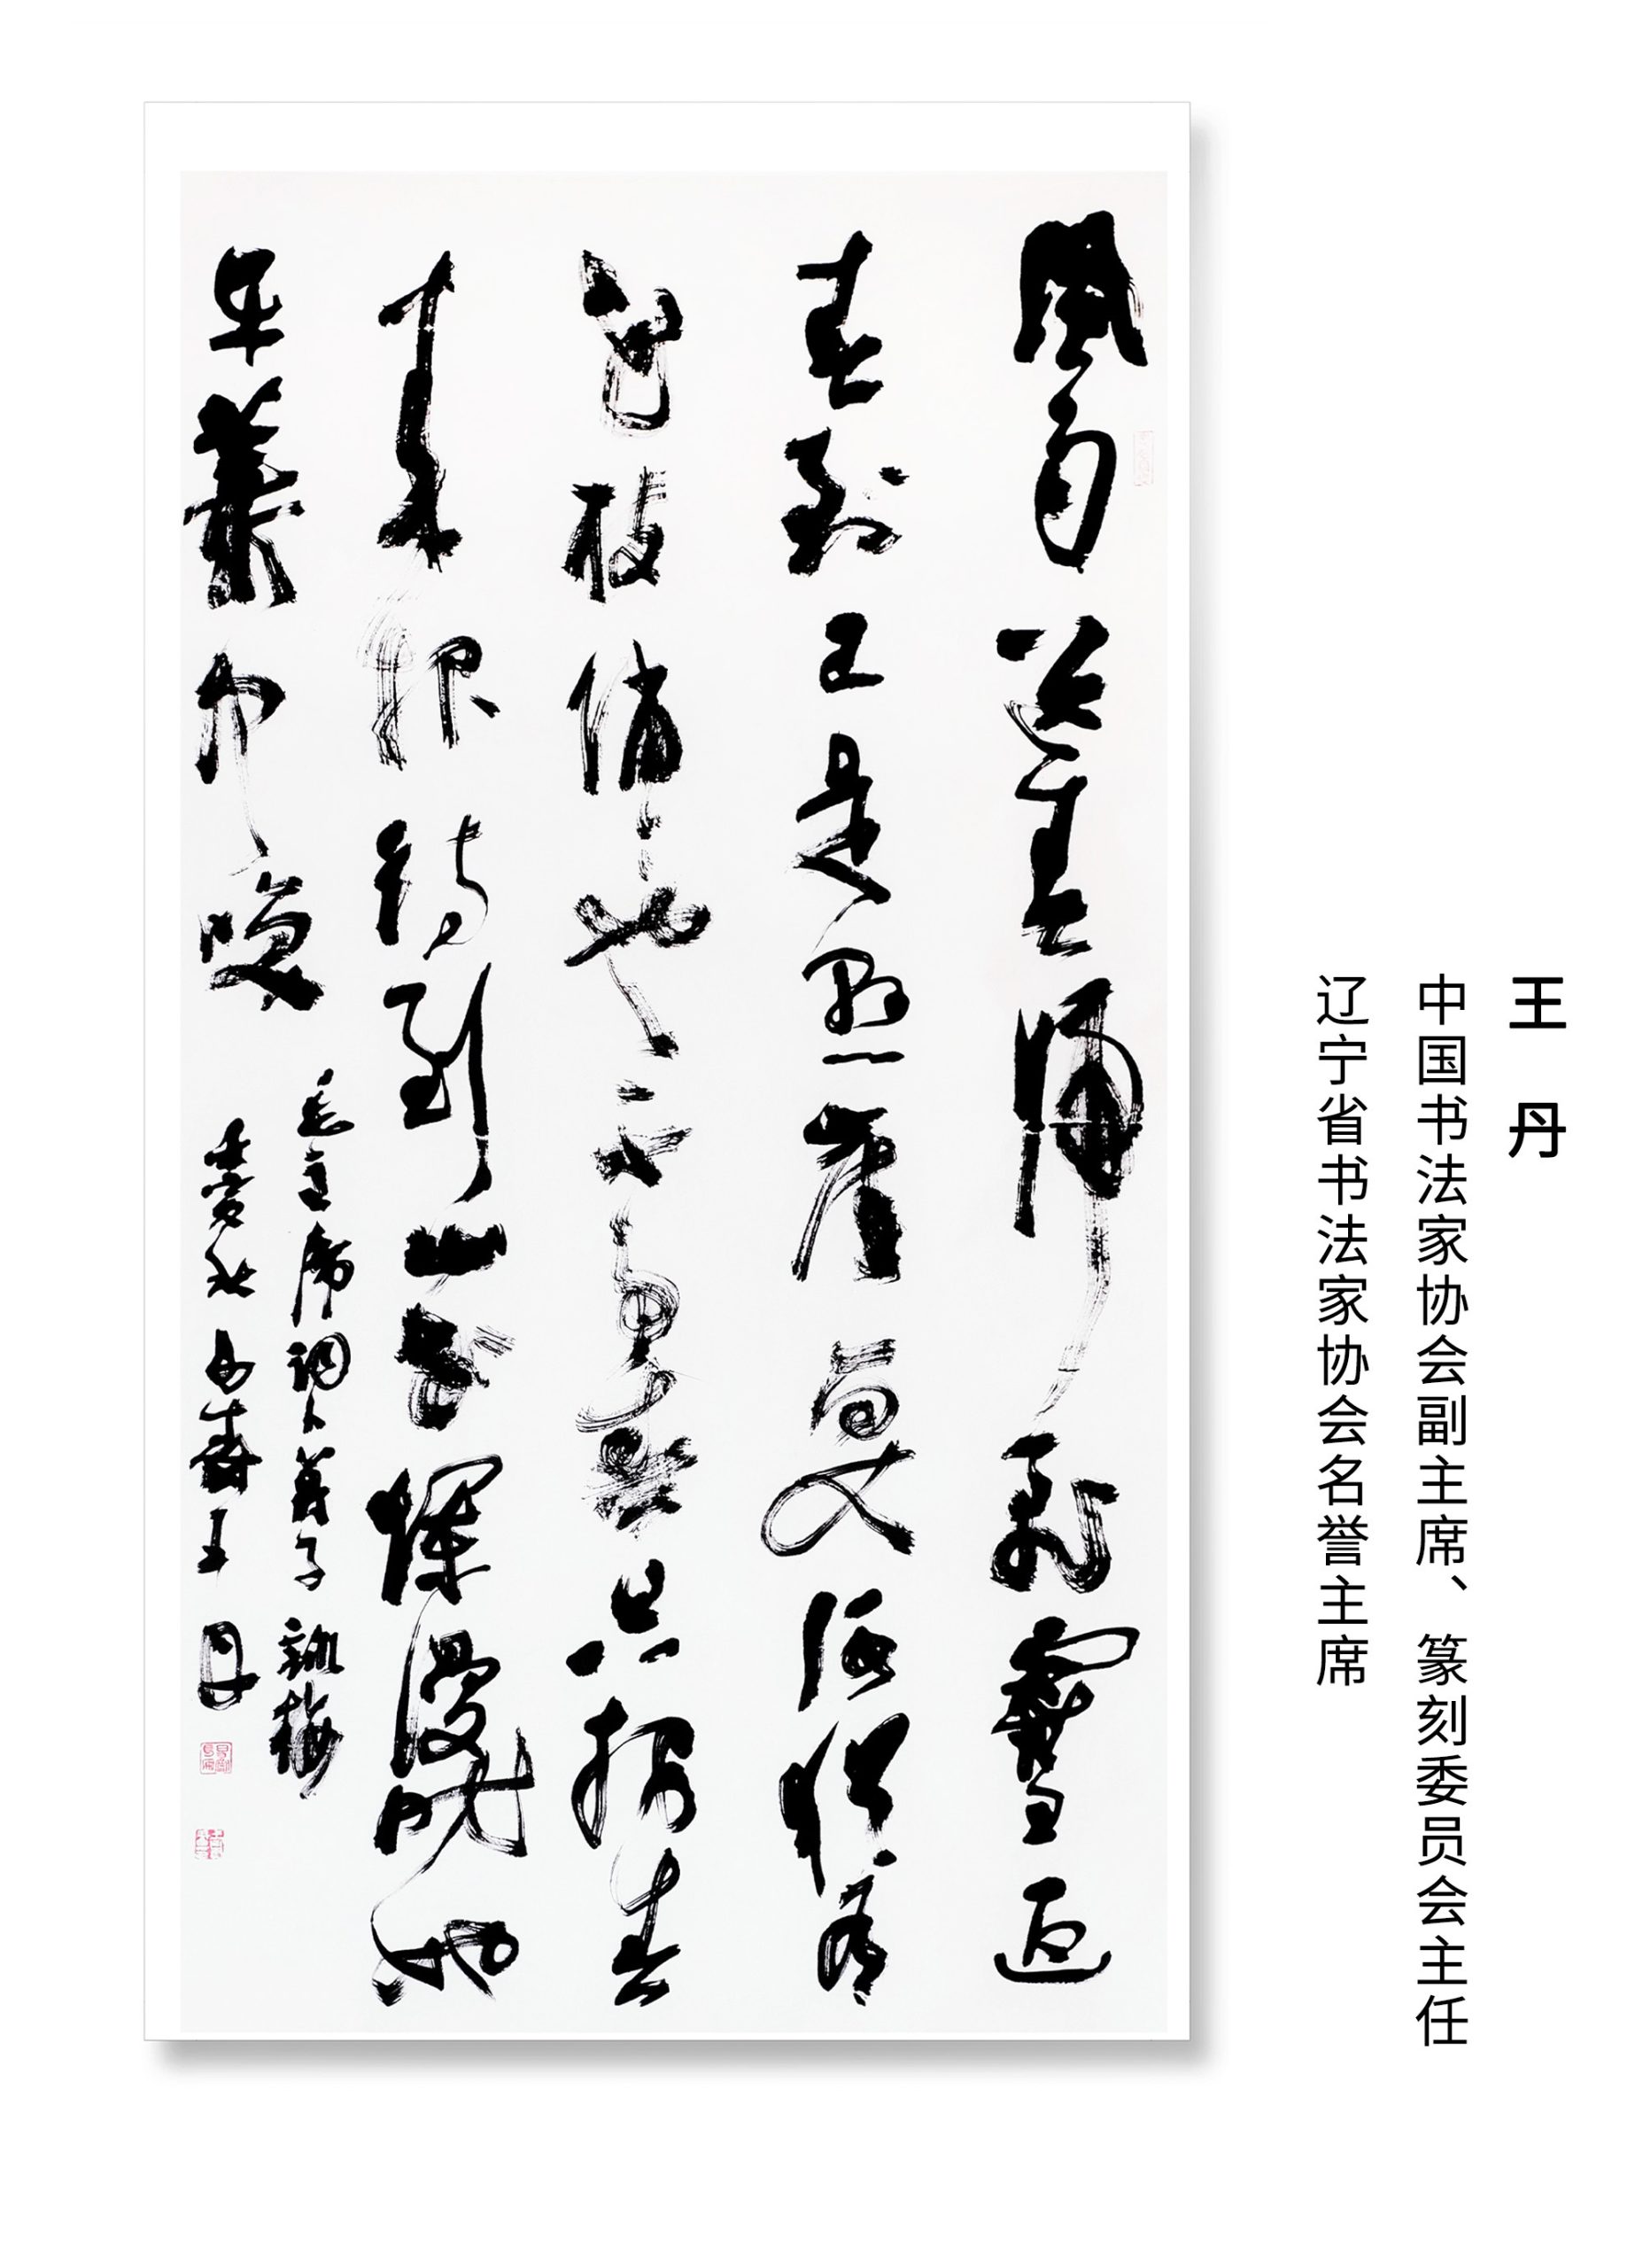 王丹
中国书法家协会副主席、篆刻委员会主任
辽宁省书法家协会名誉主席
風雨送春歸飛雪迎
春到已是懸崖百丈冰猶有
花枝俏〻也不爭春只把春
来報待到山花爛漫時她
在叢中笑
毛主席詞卜算子詠梅
壬寅秋 王丹